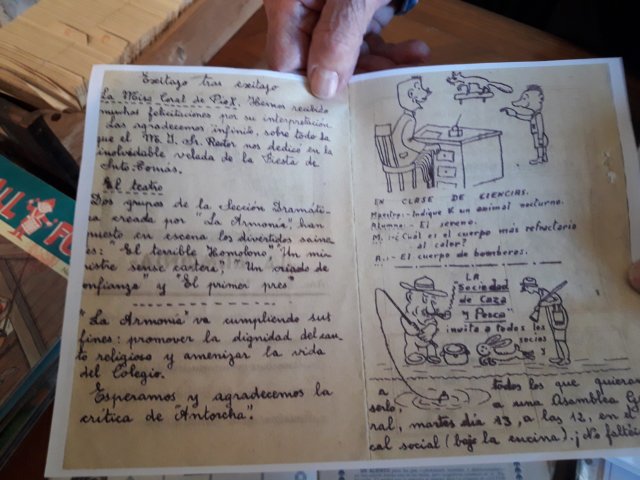 Exitazo tras exitazo
La Misa Coral de Pío X. Hemos recibido
muchas felicitaciones por su interpretación.
Las agradecemos infinito, sobre todo la
que el M. I. Sr. Rector nos dedicó en la
inolvidable velada de la fiesta de
Sto. Tomás.
El teatro
Dos grupos de la Sección Dramáti-
ca creada por "La Armonía", han
puesto en escena los divertidos saine-
tes: "El terrible Homobono", "Un mi-
nistre sense cartera", "Un criado de
confianza" y "El primer pres"
"La Armonía" va cumpliendo sus
fines: promover la dignidad del can-
to religioso y amenizar la vida
del Colegio.
Esperamos y agradecemos la
crítica de "Antorcha".
EN CLASE DE CIENCIAS.
Maestro: - Indique V. un animal nocturno.
Alumno: - El sereno.
M. :- ¿Cuál es el cuerpo más refractario
al calor?
A. :- El cuerpo de bomberos.
LA
"Sociedad
de Caza
y Pesca"
invita a todos los
socios
y
a todos los que quieran
serlo, a una Asamblea Ge
ral, martes día 13, a las 12, en el
cal social (bajo la encina). ¡No faltéis